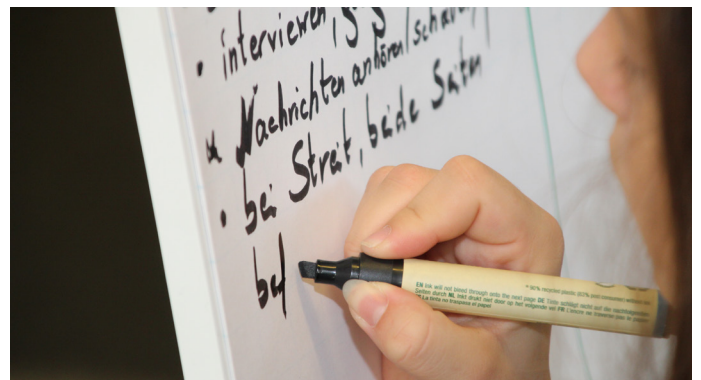 • interviewen,
Nachrichten anhören/schauen
• bei Streit, beide Seiten
bef
EN Ink will not bleed through onto the next page DE Tinte schlägt nicht auf die nachfolgenden
Seiten durch NL Inkt drukt niet door op het volgende vel FR L'encre ne traverse pas le papier
La tinta no traspasa el papel
* 90% recycled plastic